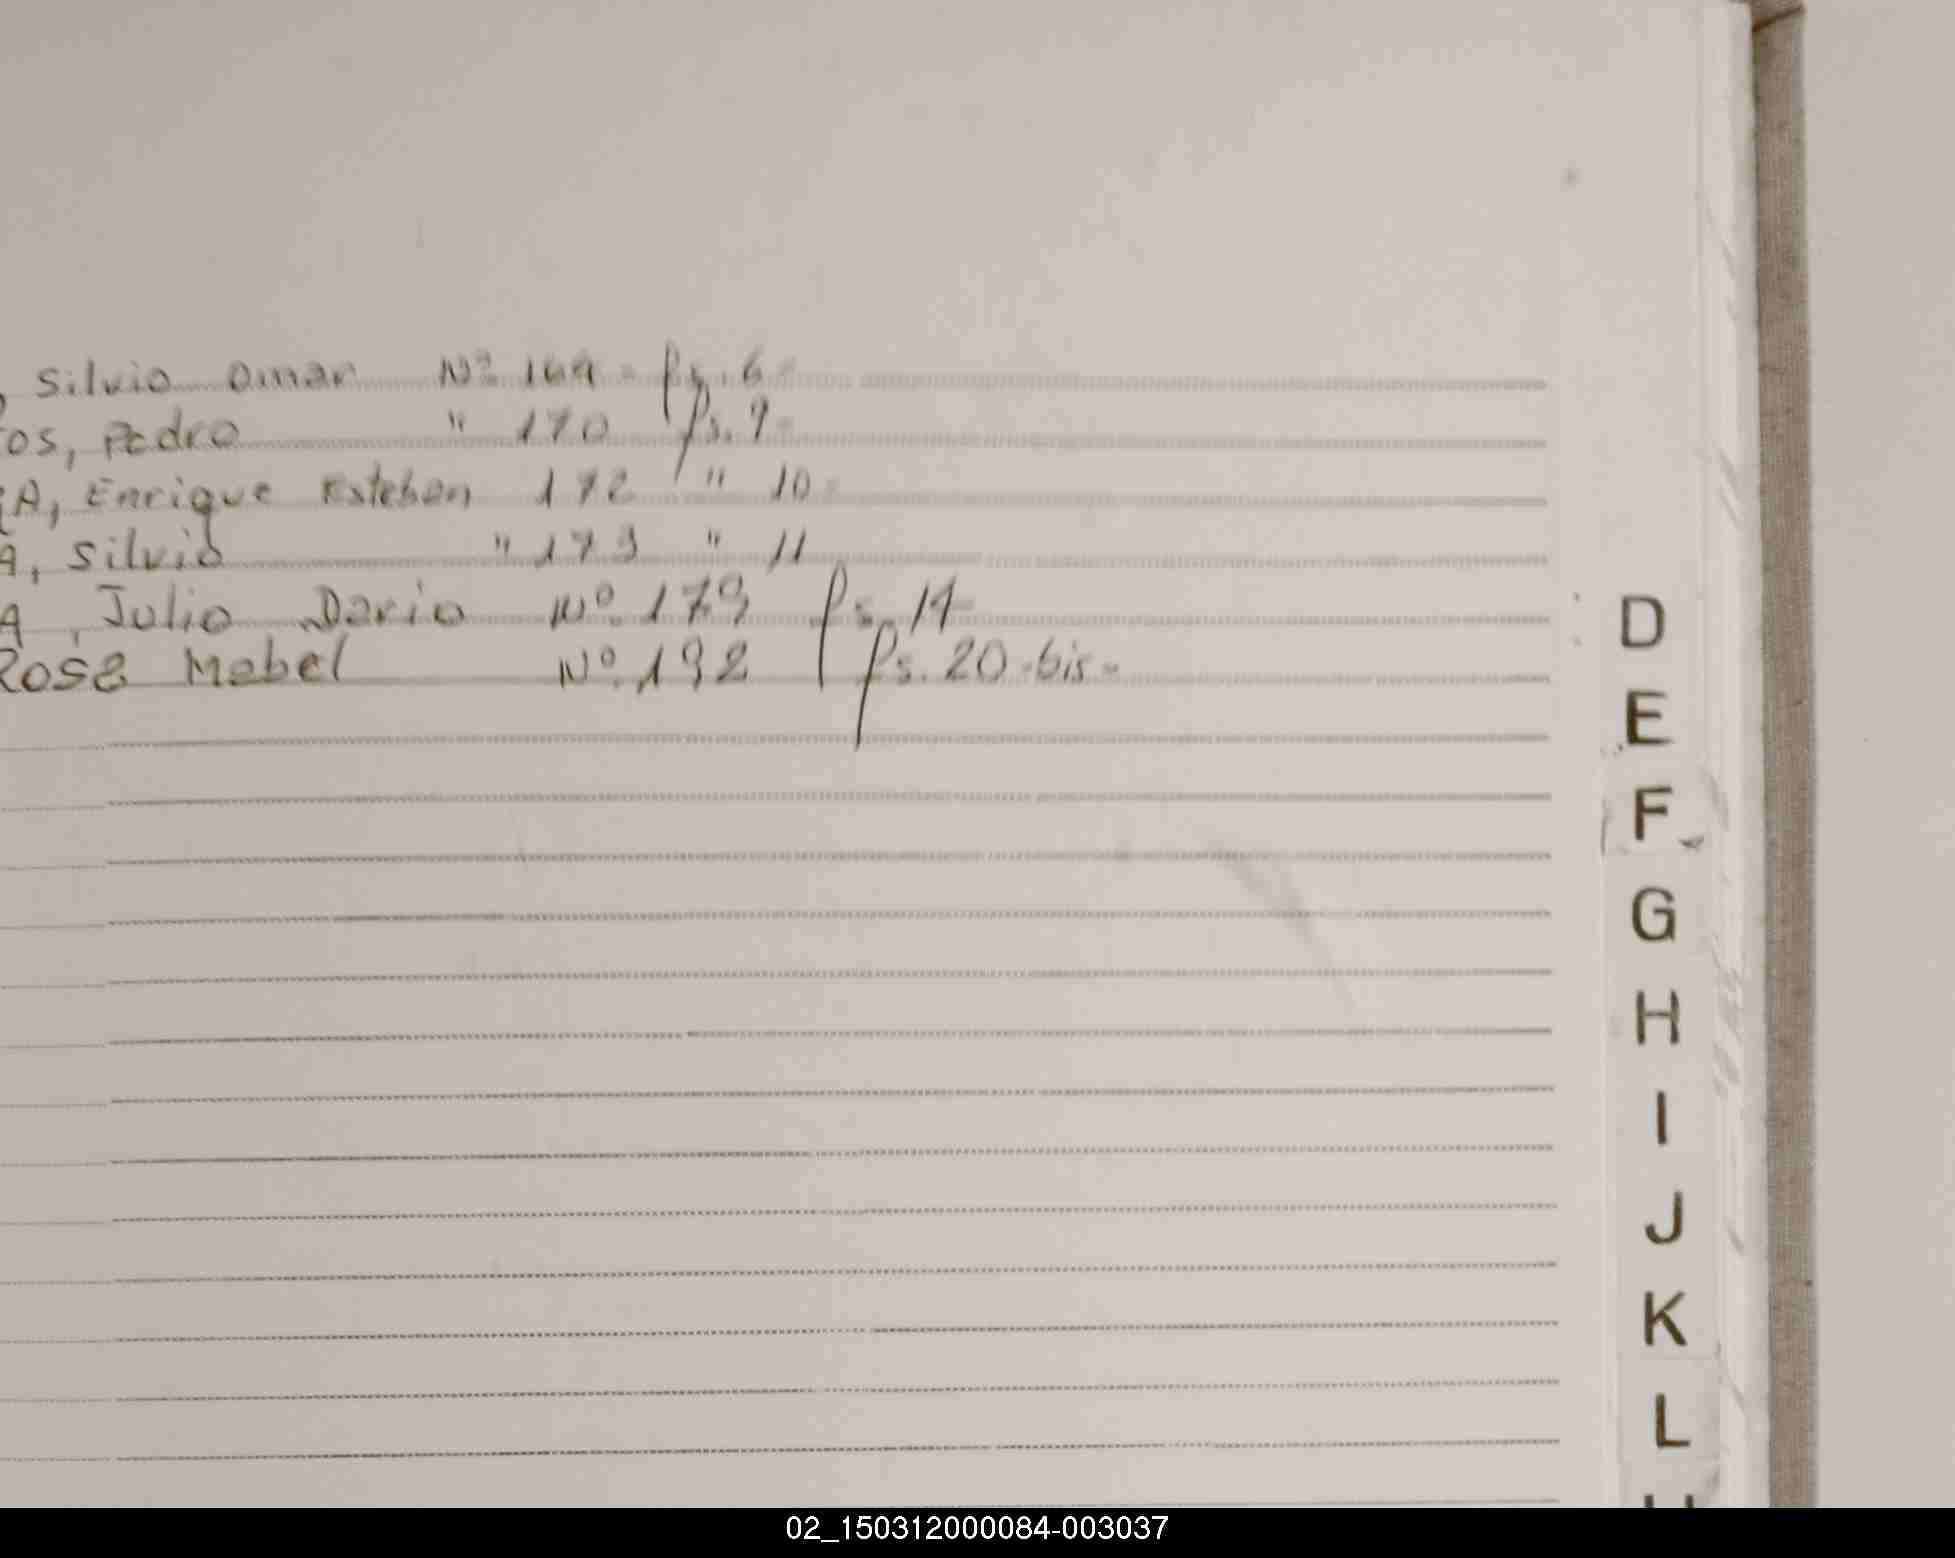 , Silvio Omar Nº 169 - fs. 6 -
os, Pedro " 170 fs. 9 -
A, Enrique Esteban 172 " 10 -
A, Silvio " 173 " 11
A, Julio Dario Nº. 179 fs. 14
Rosa Mabel Nº. 192 fs. 20 bis -
D
E
F
G
H
I
J
K
L
02_150312000084-003037